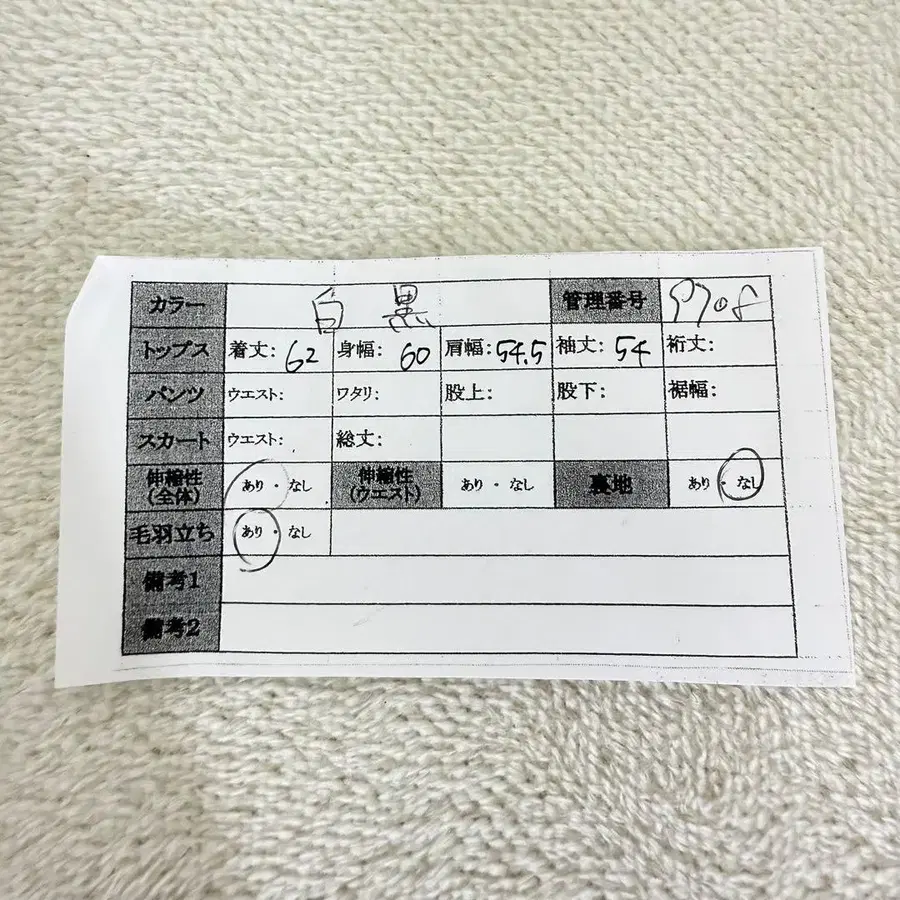 カラー 白 黒 管理番号
トップス 着丈: 62 身幅: 60 肩幅: 54.5 袖丈: 54 裄丈:
パンツ ウエスト: ワタリ: 股上: 股下: 裾幅:
スカート ウエスト: 総丈:
伸縮性(全体) あり・なし 伸縮性(ウエスト) あり・なし 裏地 あり・なし
毛羽立ち あり・なし
備考1
備考2